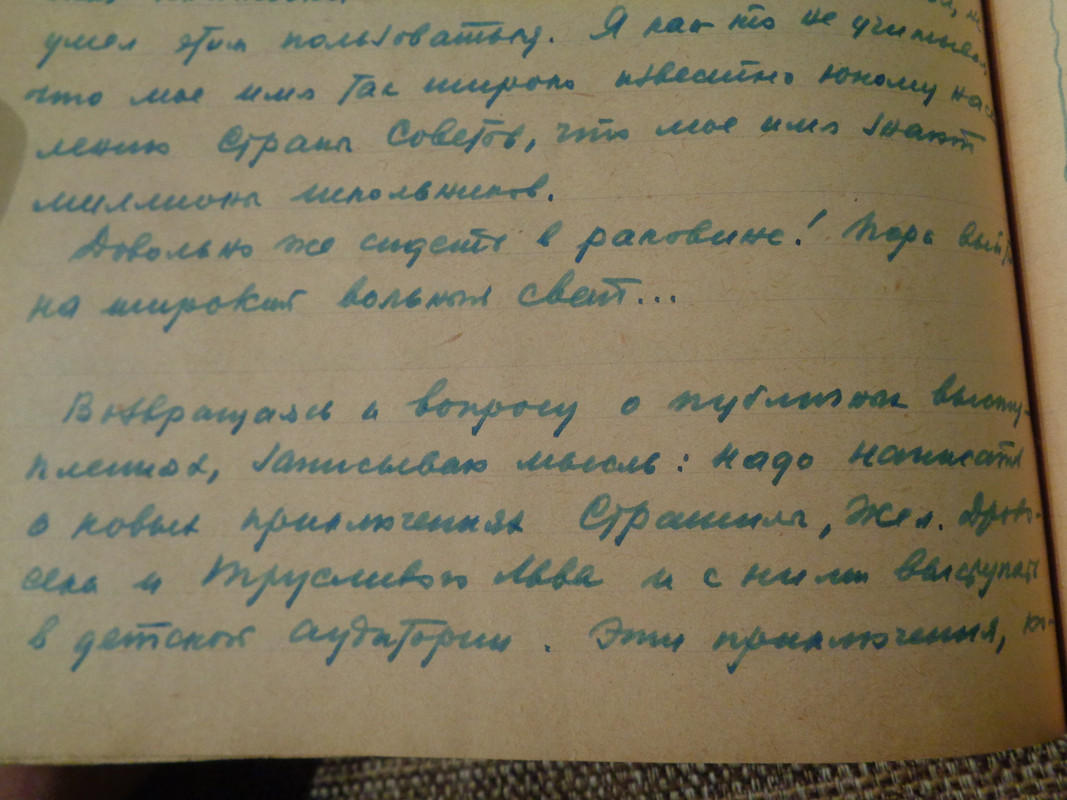 умел этим пользоваться. Я как то не учитывал
что мое имя так широко известно юному насе
лению Страны Советов, что мое имя знают
миллионы школьников.
Довольно же сидеть в раковине! Пора выйти
на широкий вольный свет...
Возвращаясь к вопросу о публичных высту-
плениях, записываю мысль: надо написать
о новых приключениях Страшилы, Жел. Дрово-
сека и Трусливого Льва и с ними выступать
в детской аудитории. Эти приключения,